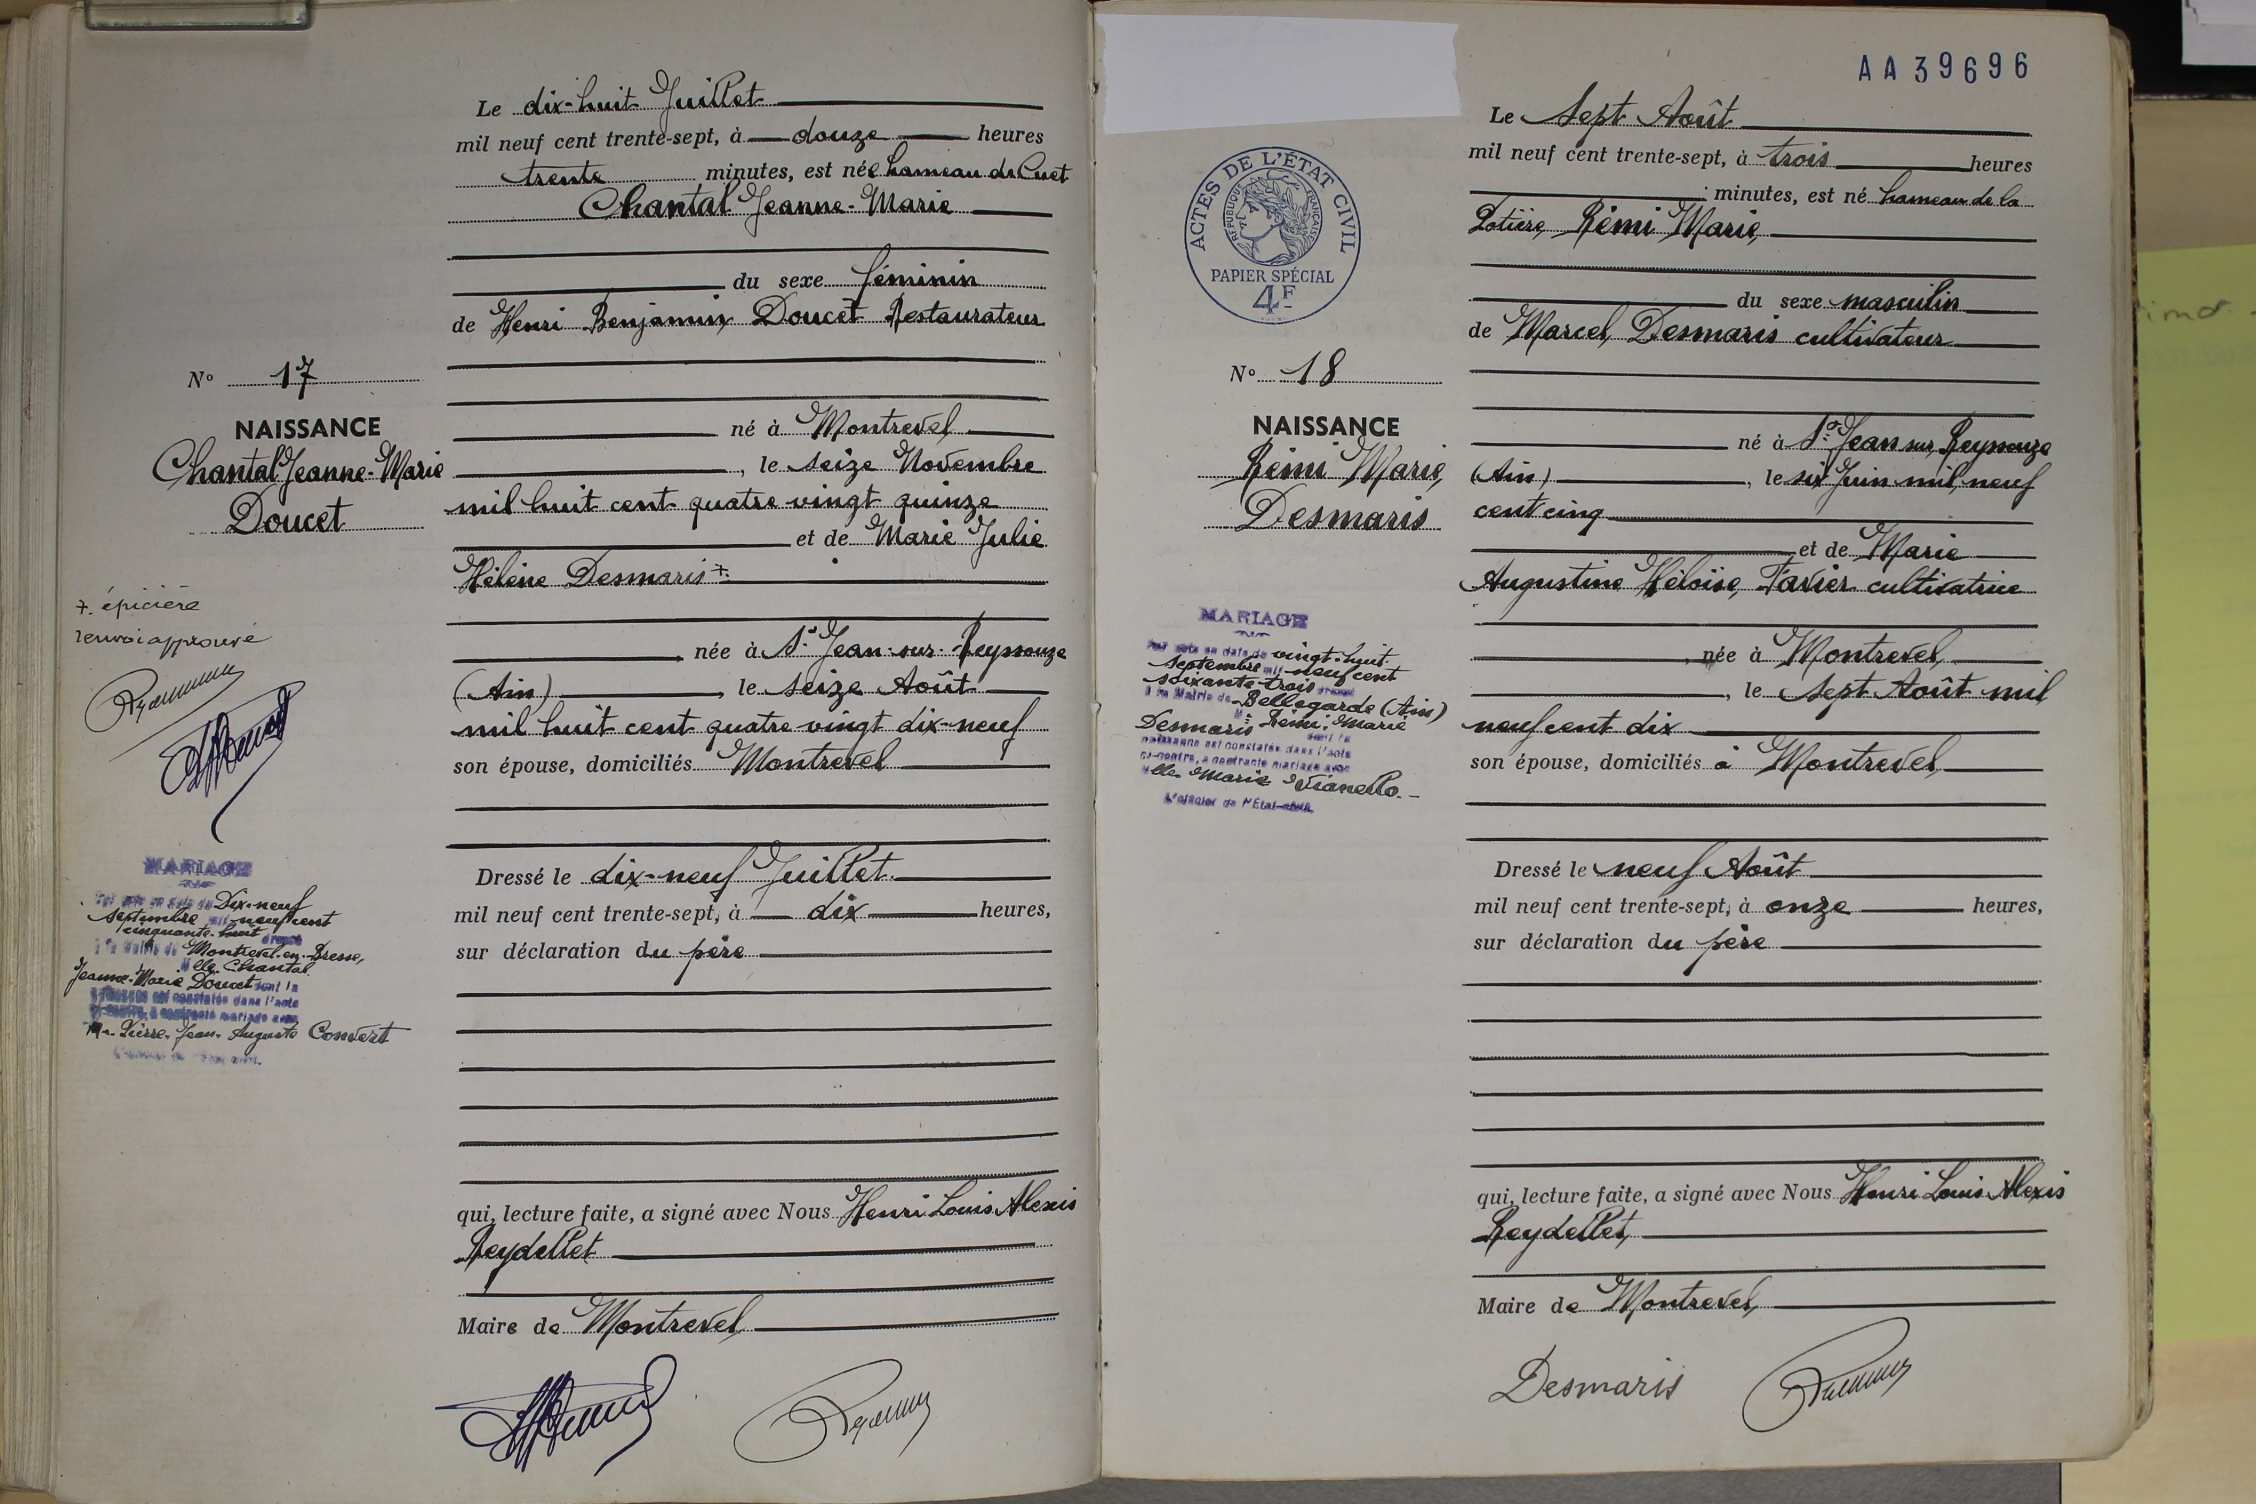 Le dix-huit Juillet
mil neuf cent trente-sept, à douze heures
trente minutes, est née hameau de Cuet
Chantal Jeanne-Marie
du sexe féminin
de Henri Benjamin Doucet Restaurateur
né à Montrevel
, le seize Novembre
mil huit cent quatre vingt quinze
et de Marie Julie
Hélène Desmaris +.
née à St Jean-sur-Reyssouze
(Ain) , le seize Août
mil huit cent quatre vingt dix-neuf
son épouse, domiciliés Montrevel
Dressé le dix-neuf Juillet
mil neuf cent trente-sept, à dix heures,
sur déclaration du père
qui, lecture faite, a signé avec Nous Henri Louis Alexis
Reydellet
Maire de Montrevel
No 17
NAISSANCE
Chantal Jeanne-Marie
Doucet
+. épicière
renvoi approuvé
MARIAGE
Par acte en date du Dix-neuf
septembre mil neuf cent
cinquante-huit dressé
à la Mairie de Montrevel-en-Bresse,
Melle Chantal
Jeanne-Marie Doucet dont la
naissance est constatée dans l'acte
ci-contre, a contracté mariage avec
Mr. Pierre-Jean-Auguste Convert
L'officier de l'État civil.
AA39696
ACTES DE L'ÉTAT CIVIL
RÉPUBLIQUE FRANÇAISE
PAPIER SPÉCIAL
4F
Le Sept Août
mil neuf cent trente-sept, à trois heures
minutes, est né hameau de la
Potière, Rémi Marie,
du sexe masculin
de Marcel, Desmaris cultivateur
né à St Jean sur Reyssouze
(Ain) , le six Juin mil neuf
cent cinq
et de Marie
Augustine Héloïse, Favier cultivatrice
née à Montrevel,
, le Sept Août mil
neuf cent dix
son épouse, domiciliés à Montrevel,
Dressé le neuf Août
mil neuf cent trente-sept, à onze heures,
sur déclaration du père
qui, lecture faite, a signé avec Nous Henri Louis Alexis
Reydellet,
Maire de Montrevel,
Desmaris
No 18
NAISSANCE
Rémi Marie,
Desmaris
MARIAGE
Par acte en date du vingt-huit
septembre mil neuf cent
soixante-trois dressé
à la Mairie de Bellegarde (Ain)
Mr Rémi, Marie
Desmaris dont la
naissance est constatée dans l'acte
ci-contre, a contracté mariage avec
Melle Maria Vianello.-
L'officier de l'État-civil.